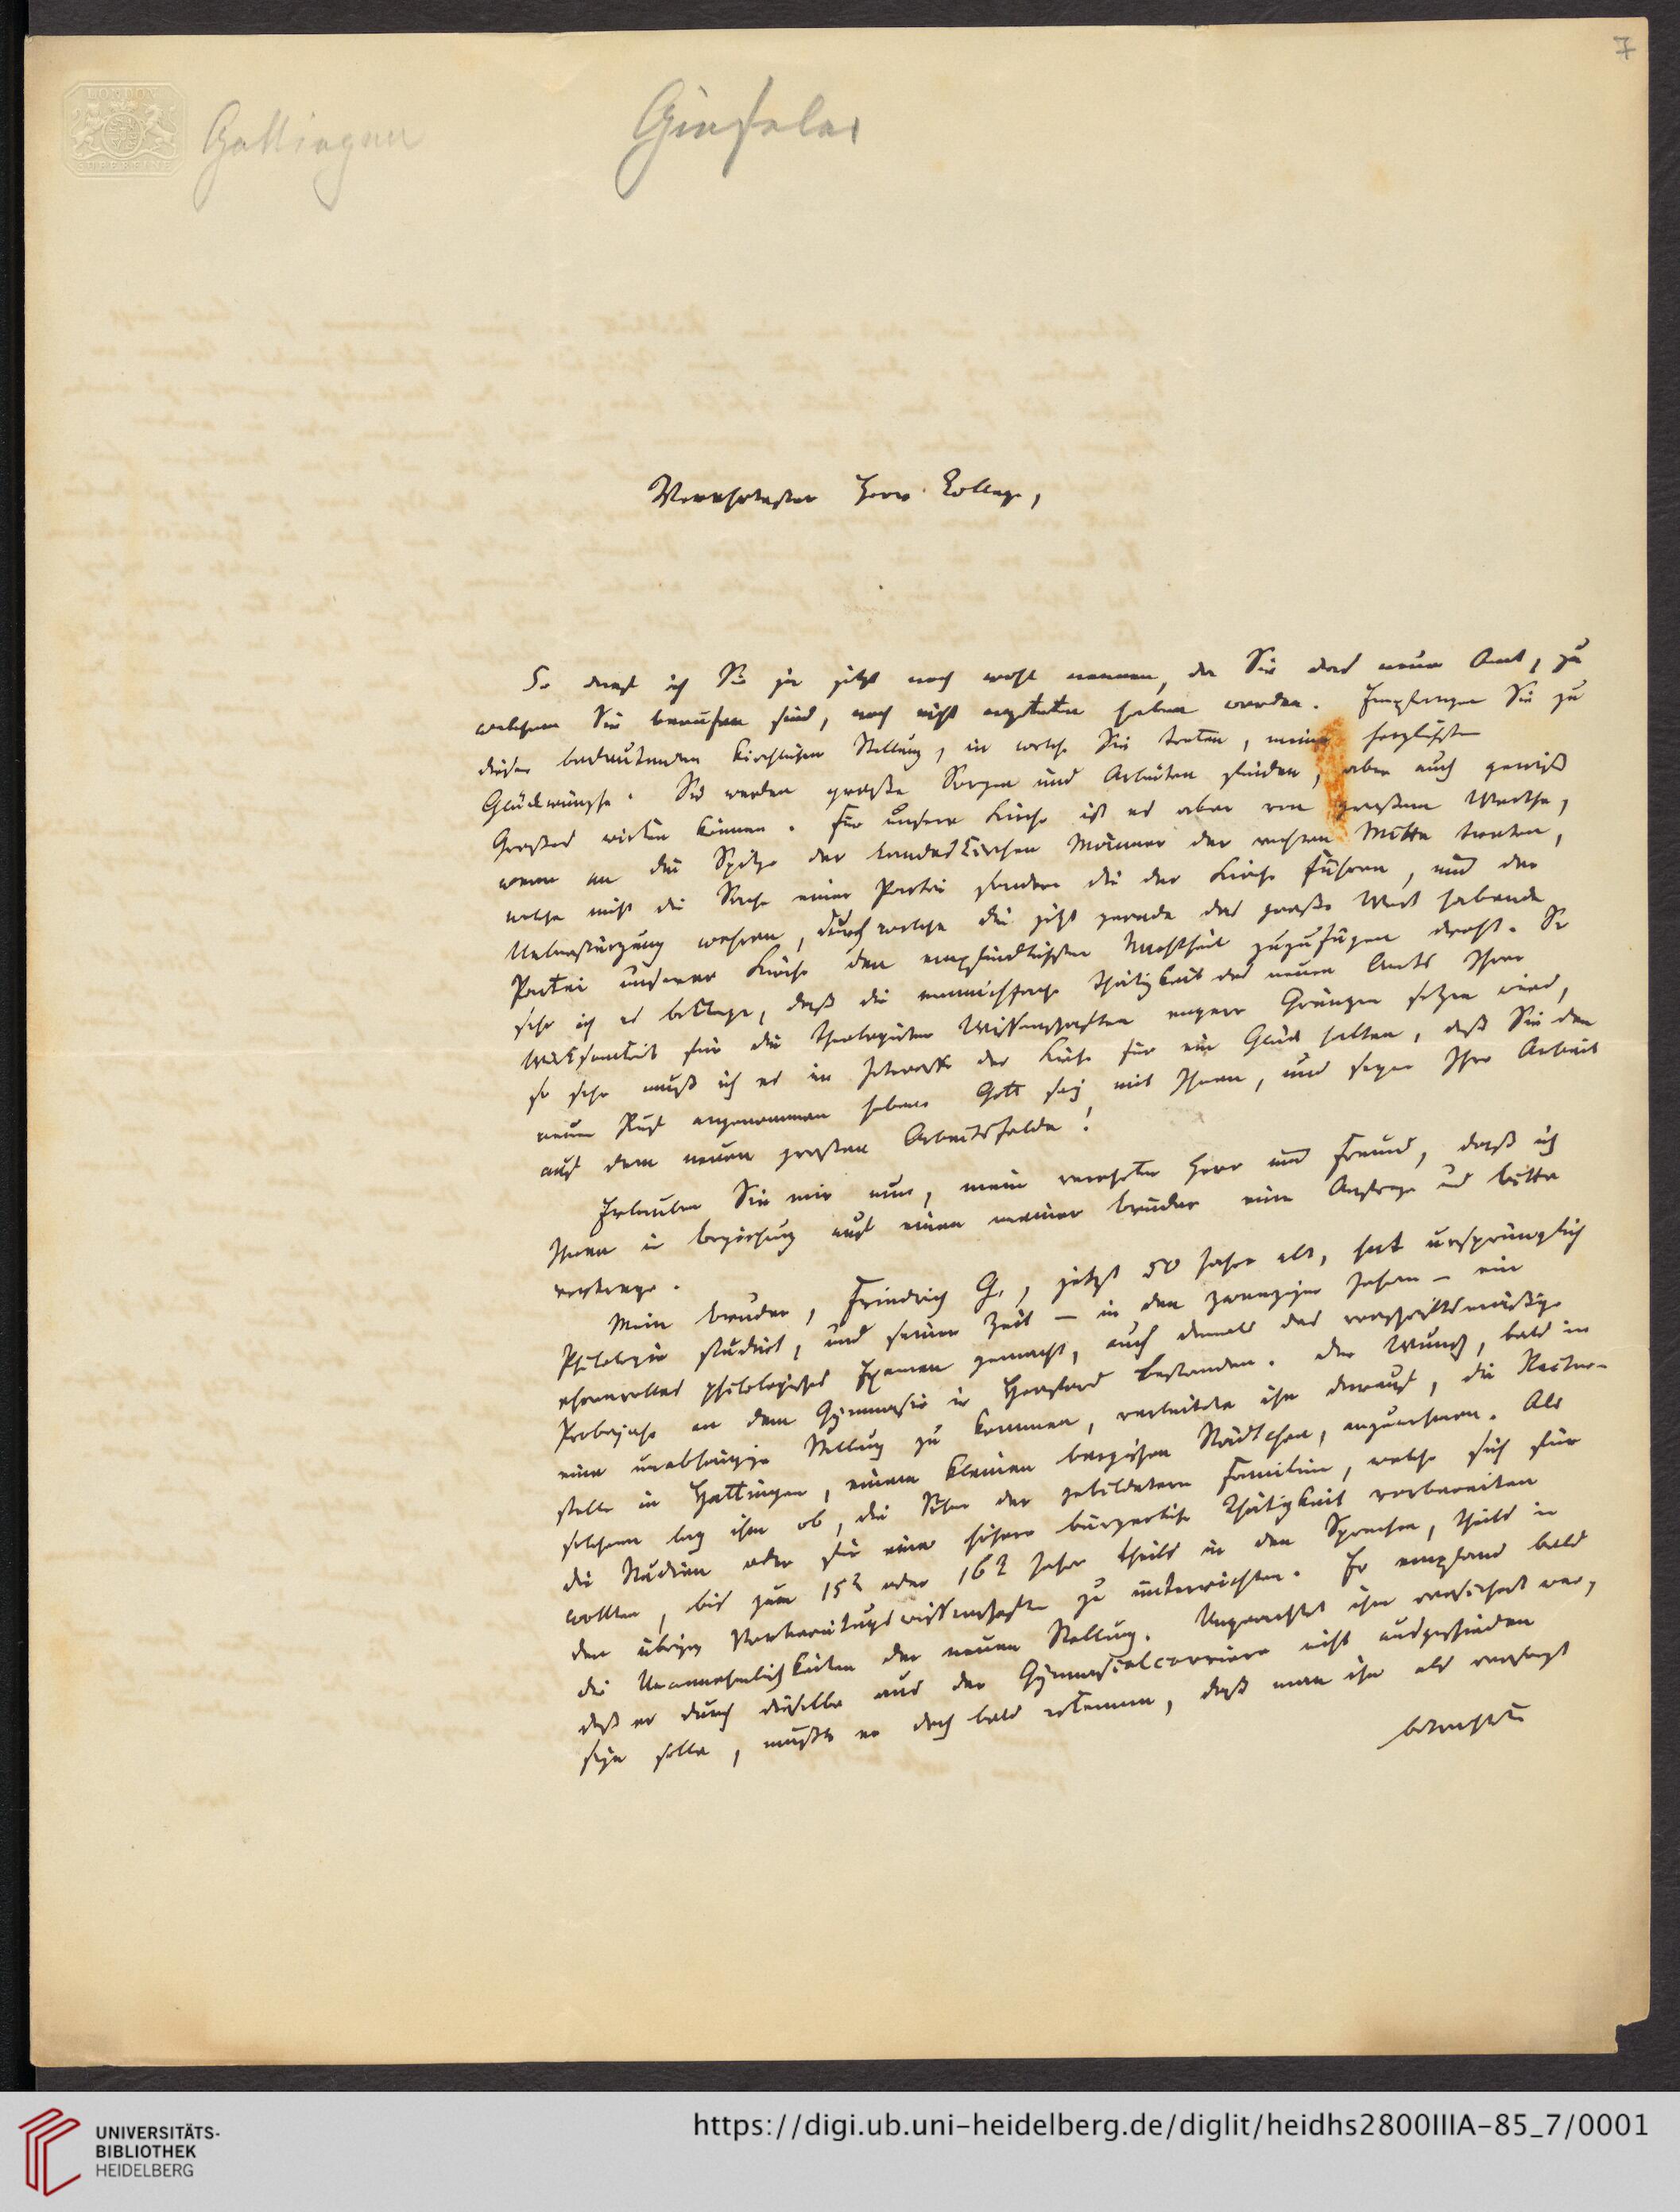 7
LONDON
SUPERFINE
Göttingen
Gieseler
Verehrtester Herr College,
So darf ich Sie ja jetzt noch wohl nennen, da Sie das neue Amt, zu
welchem Sie berufen sind, noch nicht angetreten haben werden. Empfangen Sie zu
dieser bedeutenden kirchlichen Stellung, in welche Sie treten, meine herzlichsten
Glückwünsche. Sie werden große Sorgen und Arbeiten finden, aber auch gewiß
Großes wirken können. Für unsere Kirche ist es aber von großem Werthe,
wenn an die Spitze der Landeskirchen Männer der rechten Mitte treten,
welche nicht die Sache einer Partei sondern die der Kirche führen, und der
Ueberstürzung wehren, durch welche die jetzt gerade das große Wort habende
Partei unserer Kirche den empfindlichsten Nachtheil zuzufügen droht. So
sehr ich es beklage, daß die mannichfache Thätigkeit des neuen Amts Ihrer
Wirksamkeit für die theologischen Wissenschaften engere Gränzen setzen wird,
so sehr muß ich es im Interesse der Kirche für ein Glück halten, daß Sie den
neuen Ruf angenommen haben. Gott sey mit Ihnen, und segne Ihre Arbeit
auf dem neuen großen Arbeitsfelde!
Erlauben Sie mir nun, mein verehrter Herr und Freund, daß ich
Ihnen in Beziehung auf einen meiner Brüder eine Anfrage und Bitte
vortrage.
Mein Bruder, Friedrich G., jetzt 50 Jahre alt, hat ursprünglich
Philologie studirt, und seiner Zeit – in den zwanziger Jahren – ein
ehrenvolles philologisches Examen gemacht, auch damals das vorschriftsmäßige
Probejahr an dem Gymnasio in Herford bestanden. Der Wunsch, bald in
eine unabhängige Stellung zu kommen, verleitete ihn darauf, die Rector-
stelle in Hattingen, einem kleinen bergischen Städtchen, anzunehmen. Als
solchem lag ihm ob, die Söhne der gebildeteren Familien, welche sich für
die Studien oder für eine höhere bürgerliche Thätigkeit vorbereiten
wollten, bis zum 15t oder 16t Jahre theils in den Sprachen, theils in
den übrigen Vorbereitungswissenschaften zu unterrichten. Er empfand bald
die Unannehmlichkeiten der neuen Stellung. Ungeachtet ihm versichert war,
daß er durch dieselbe aus der Gymnasialcarriere nicht ausgeschieden
seyn solle, mußte er doch bald erkennen, daß man ihn als
betrachte
UNIVERSITÄTS-
BIBLIOTHEK
HEIDELBERG
https://digi.ub.uni-heidelberg.de/diglit/heidhs2800IIIA-85_7/0001